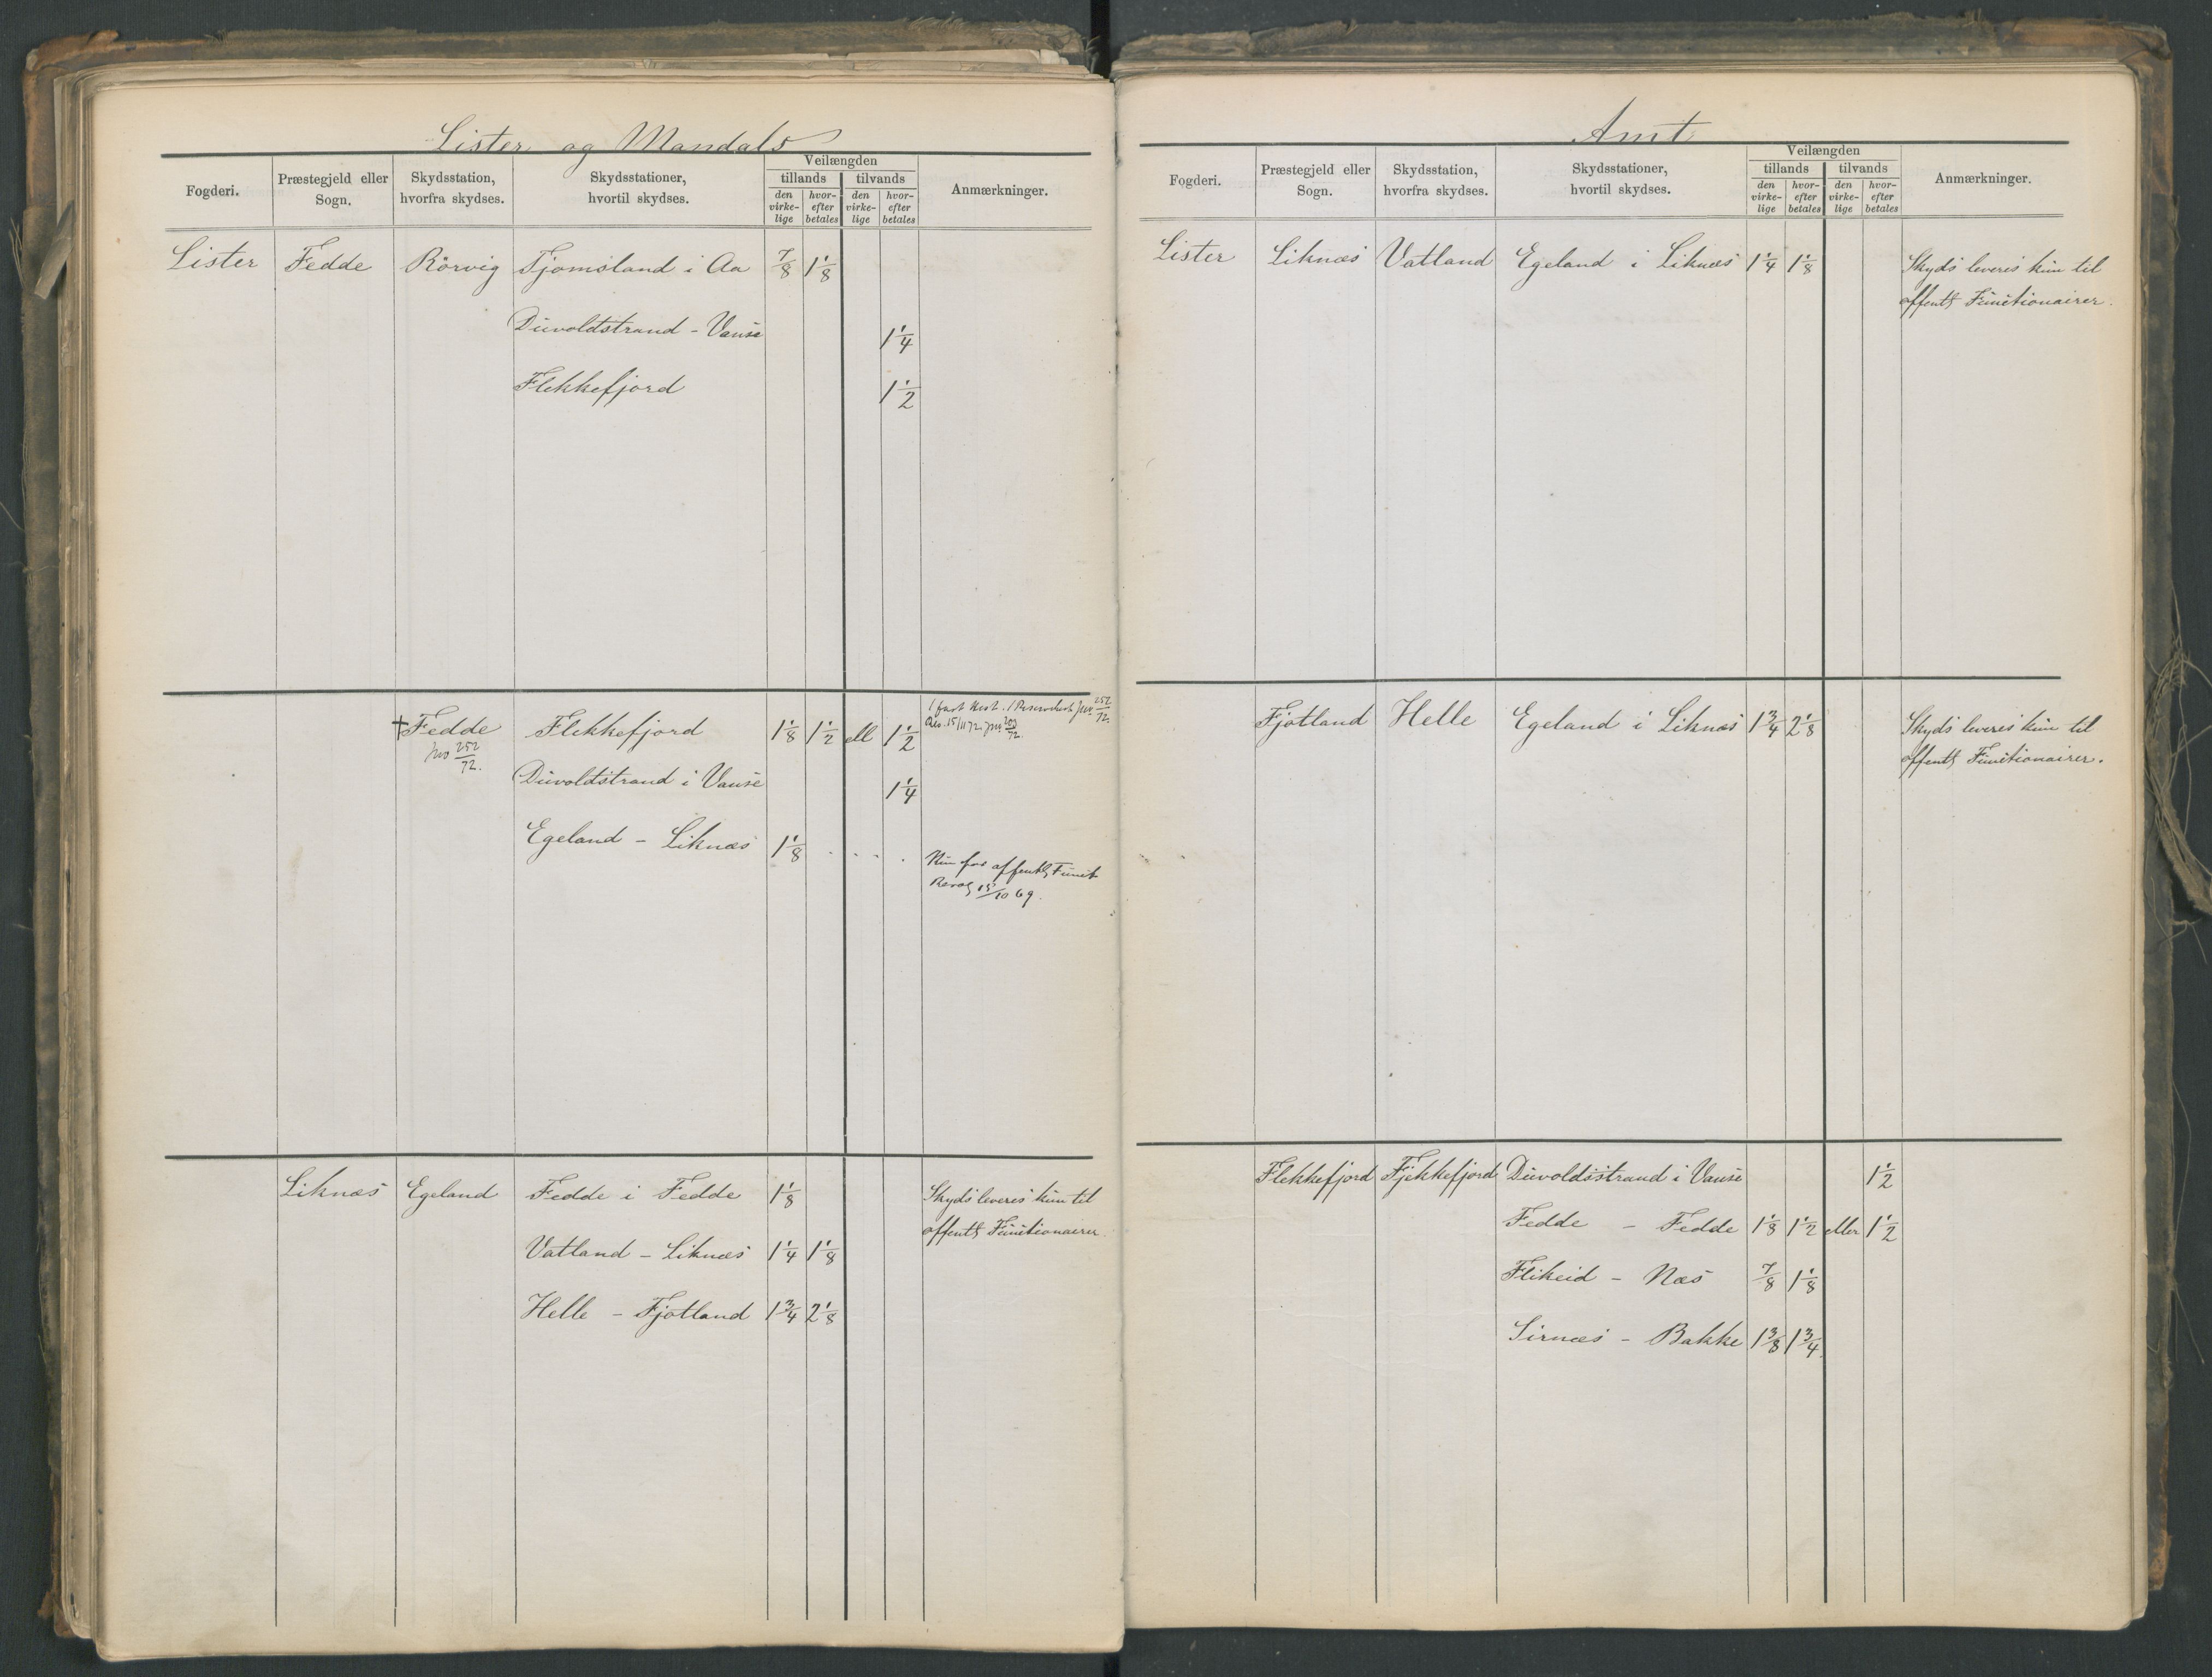 Lister og Mandals
Fogderi. Præstegjeld eller Sogn. Skydsstation, hvorfra skydses. Skydsstationer, hvortil skydses. Veilængden tillands tilvands den virke-lige hvor-efter betales den virke-lige hvor-efter betales Anmærkninger.
Lister Fedde Rörvig Tjomsland i Aa 7/8 1 1/8
Duvoldstrand - Vanse 1 1/4
Flekkefjord 1 1/2
†Fedde Flekkefjord 1 1/8 1 1/2 ell 1 1/2 1 fast Hest. 1 Reservehest Jno 252/72.
Res. 15/11 72. Jno
Jno 252/72.
Duvoldstrand i Vanse 1 1/4
Egeland - Liknæs 1 1/8 . . . .
Kun for offentl. Funct
15/10 69.
Liknæs Egeland Fedde i Fedde 1 1/8 Skyds leveres kun til
offentl. Functionairer.
Vatland - Liknæs 1 1/4 1 1/8
Helle - Fjotland 1 3/4 2 1/8
Amt
Fogderi. Præstegjeld eller Sogn. Skydsstation, hvorfra skydses. Skydsstationer, hvortil skydses. Veilængden tillands tilvands den virke-lige hvor-efter betales den virke-lige hvor-efter betales Anmærkninger.
Lister Liknæs Vatland Egeland i Liknæs 1 1/4 1 1/8 Skyds leveres kun til
offentl. Functionairer.
Fjotland Helle Egeland i Liknæs 1 3/4 2 1/8 Skyds leveres kun til
offentl. Functionairer.
Flekkefjord Flekkefjord Duvoldsstrand i Vanse 1 1/2
Fedde - Fedde 1 1/8 1 1/2 eller 1 1/2
Flikeid - Næs 7/8 1 1/8
Sirnæs - Bakke 1 3/8 1 3/4